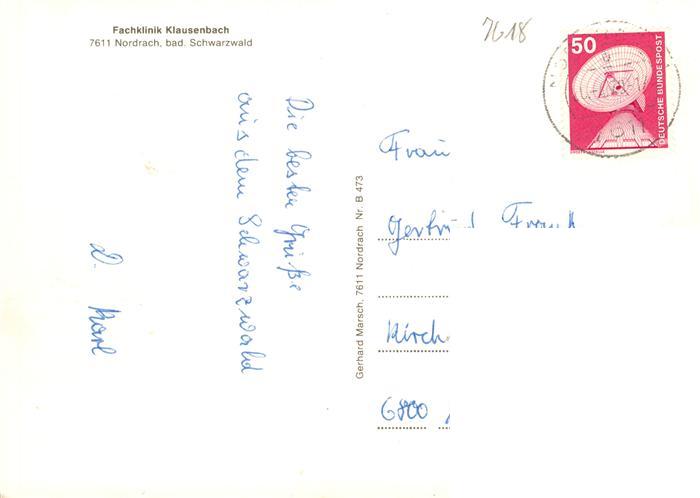 Fachklinik Klausenbach
7611 Nordrach, bad. Schwarzwald
Die besten Grüße
aus dem Schwarzwald
D. Karl
Gerhard Marsch, 7611 Nordrach Nr. B 473
7618
50
DEUTSCHE BUNDESPOST
Frau
Kirch
6800